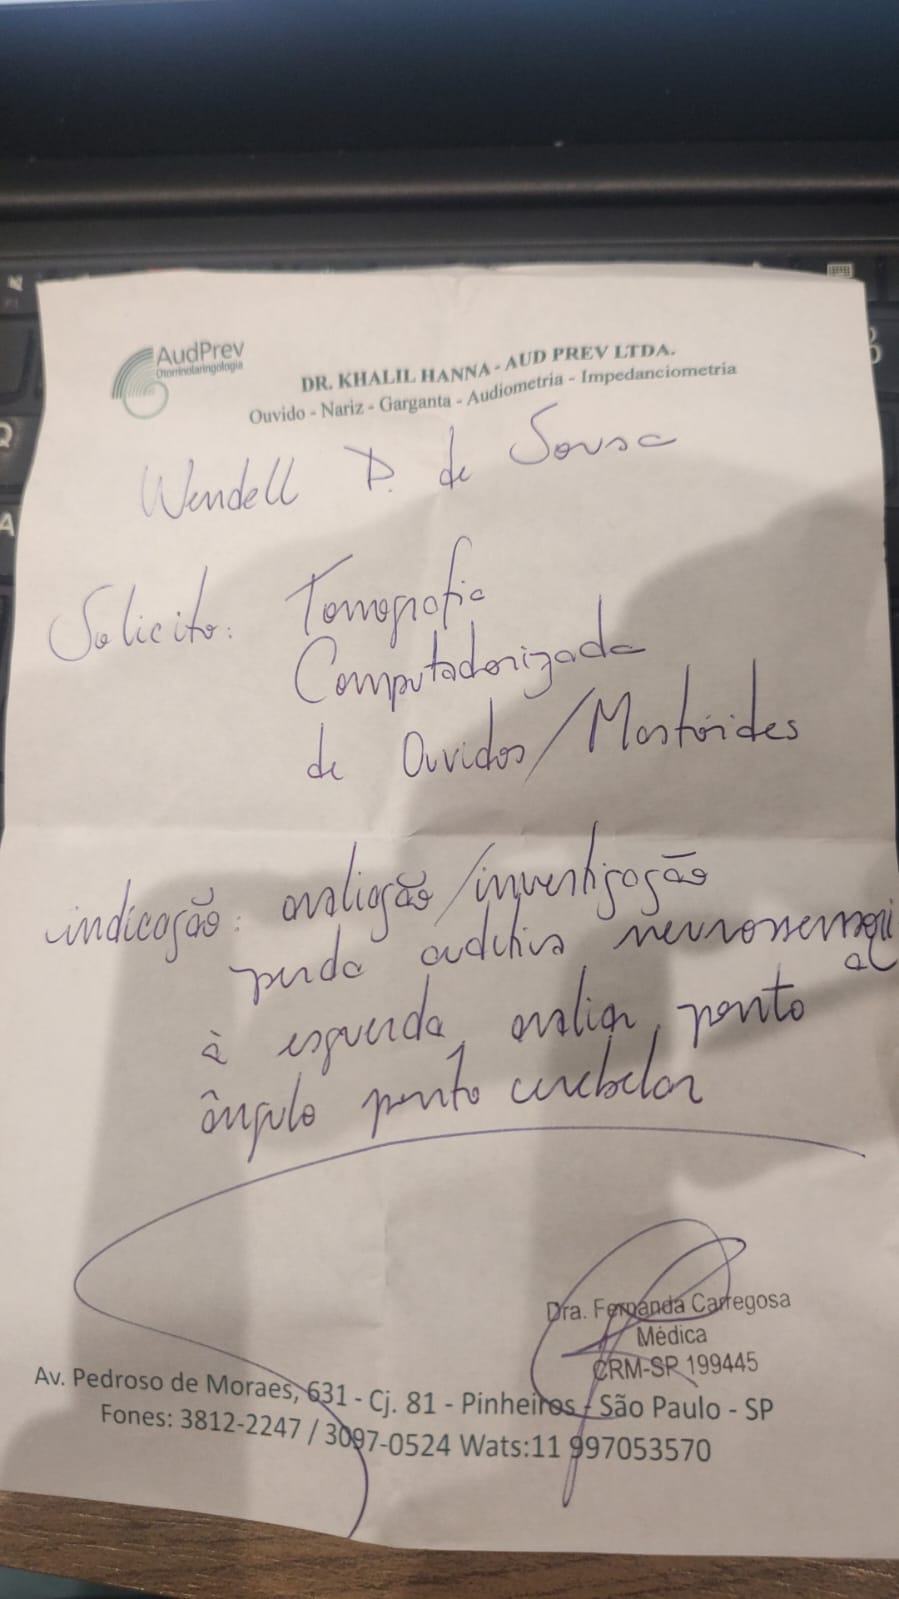 AudPrev
Otorrinolaringologia
DR. KHALIL HANNA - AUD PREV LTDA.
Ouvido - Nariz - Garganta - Audiometria - Impedanciometria
Wendell P. de Sousa
Solicito: Tomografia
Computadorizada
de Ouvidos/Mastóides
indicação: avaliação/investigação
perda auditiva neurossensori
al
à esquerda, avaliar, ponto
ângulo ponto cerebelar
Dra. Fernanda Carregosa
Médica
CRM-SP 199445
Av. Pedroso de Moraes, 631 - Cj. 81 - Pinheiros - São Paulo - SP
Fones: 3812-2247 / 3097-0524 Wats:11 997053570
Q
A